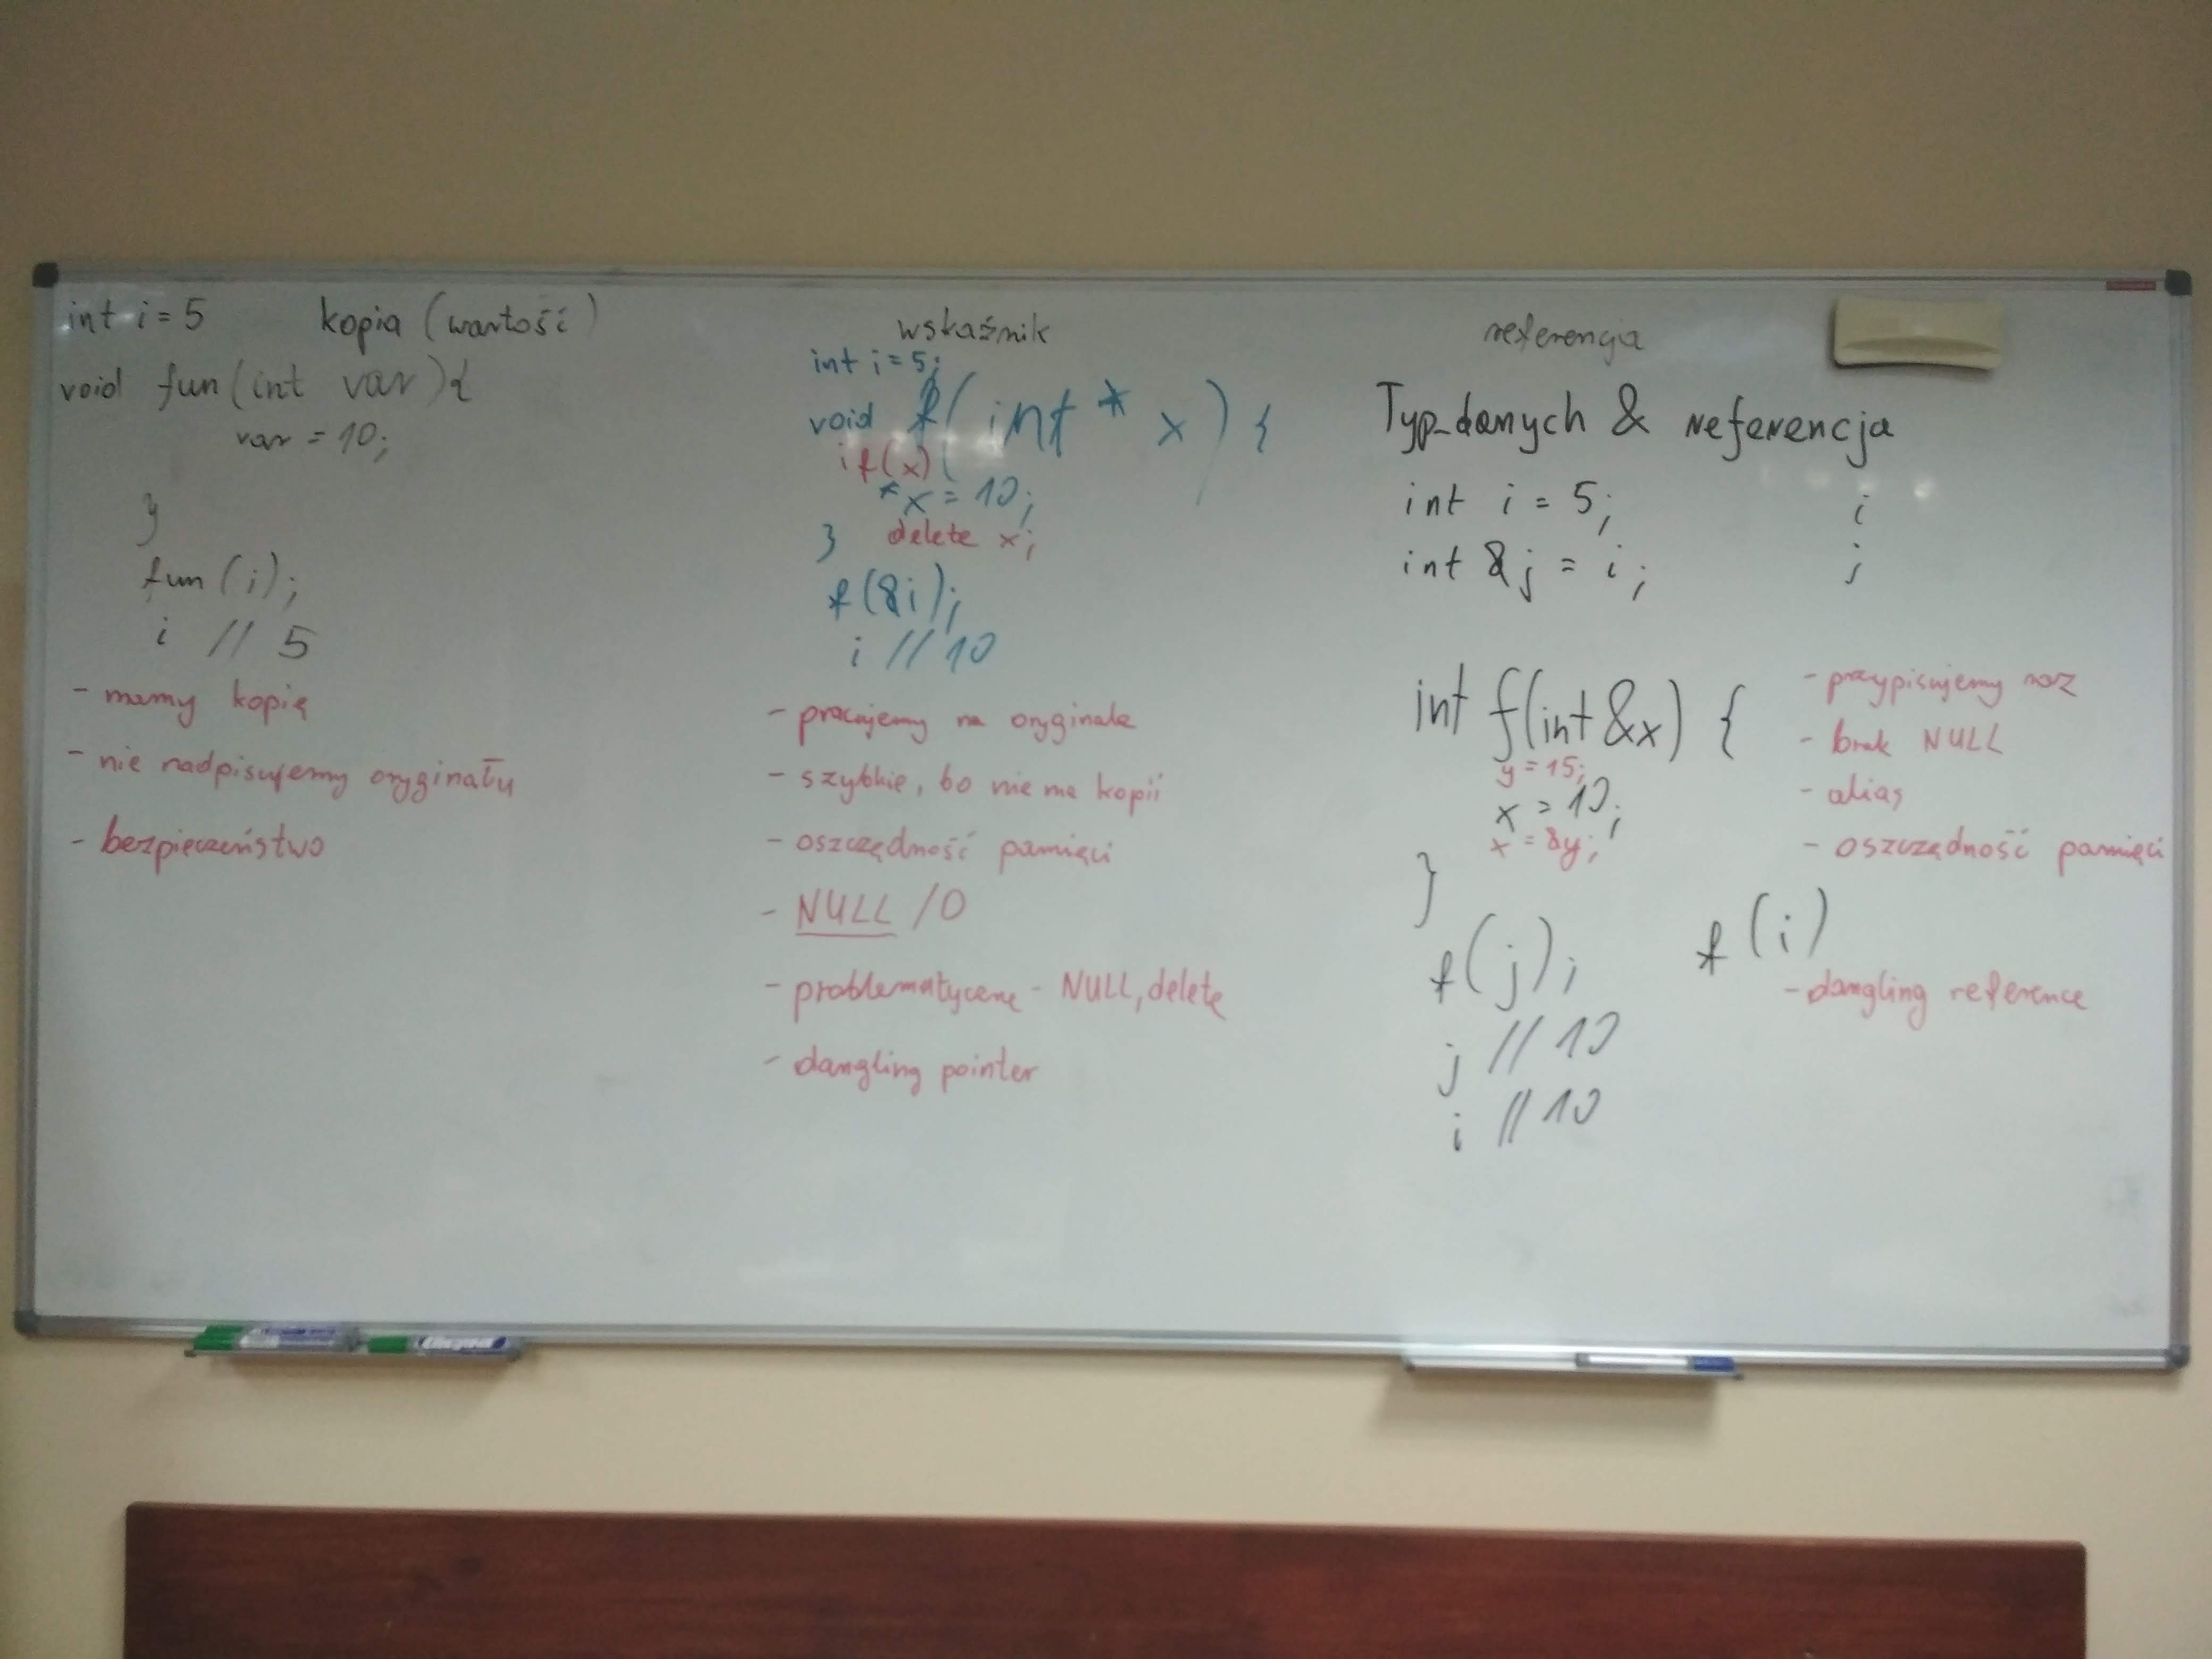 int i = 5 kopia (wartość)
void fun (int var) {
var = 10;
}
fun (i);
i // 5
- mamy kopię
- nie nadpisujemy oryginału
- bezpieczeństwo
wskaźnik
int i = 5;
void f (int * x) {
if(x)
*x = 10;
} delete x;
f (&i);
i // 10
- pracujemy na oryginale
- szybkie, bo nie ma kopii
- oszczędność pamięci
- NULL / 0
- problematyczne - NULL, delete
- dangling pointer
referencja
Typ_danych & referencja
int i = 5; i
int &j = i; j
int f(int &x) {
y = 15;
x = 10;
x = &y;
}
f (j);
j // 10
i // 10
- przypisujemy raz
- brak NULL
- alias
- oszczędność pamięci
f (i)
- dangling reference